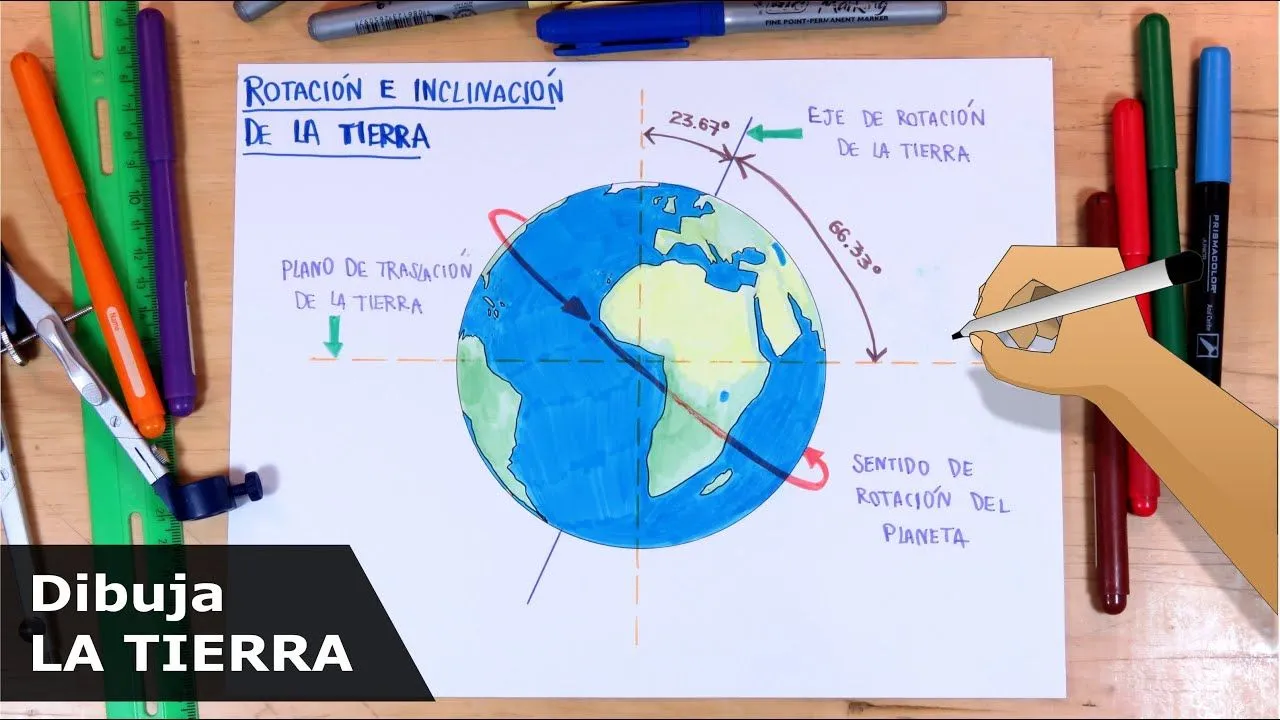 FINE POINT-PERMANENT MARKER
ROTACIÓN E INCLINACIÓN
DE LA TIERRA
23.67°
EJE DE ROTACIÓN
DE LA TIERRA
66.33°
PLANO DE TRASLACIÓN
DE LA TIERRA
SENTIDO DE
ROTACIÓN DEL
PLANETA
Name
PRISMACOLOR
Dibuja
LA TIERRA